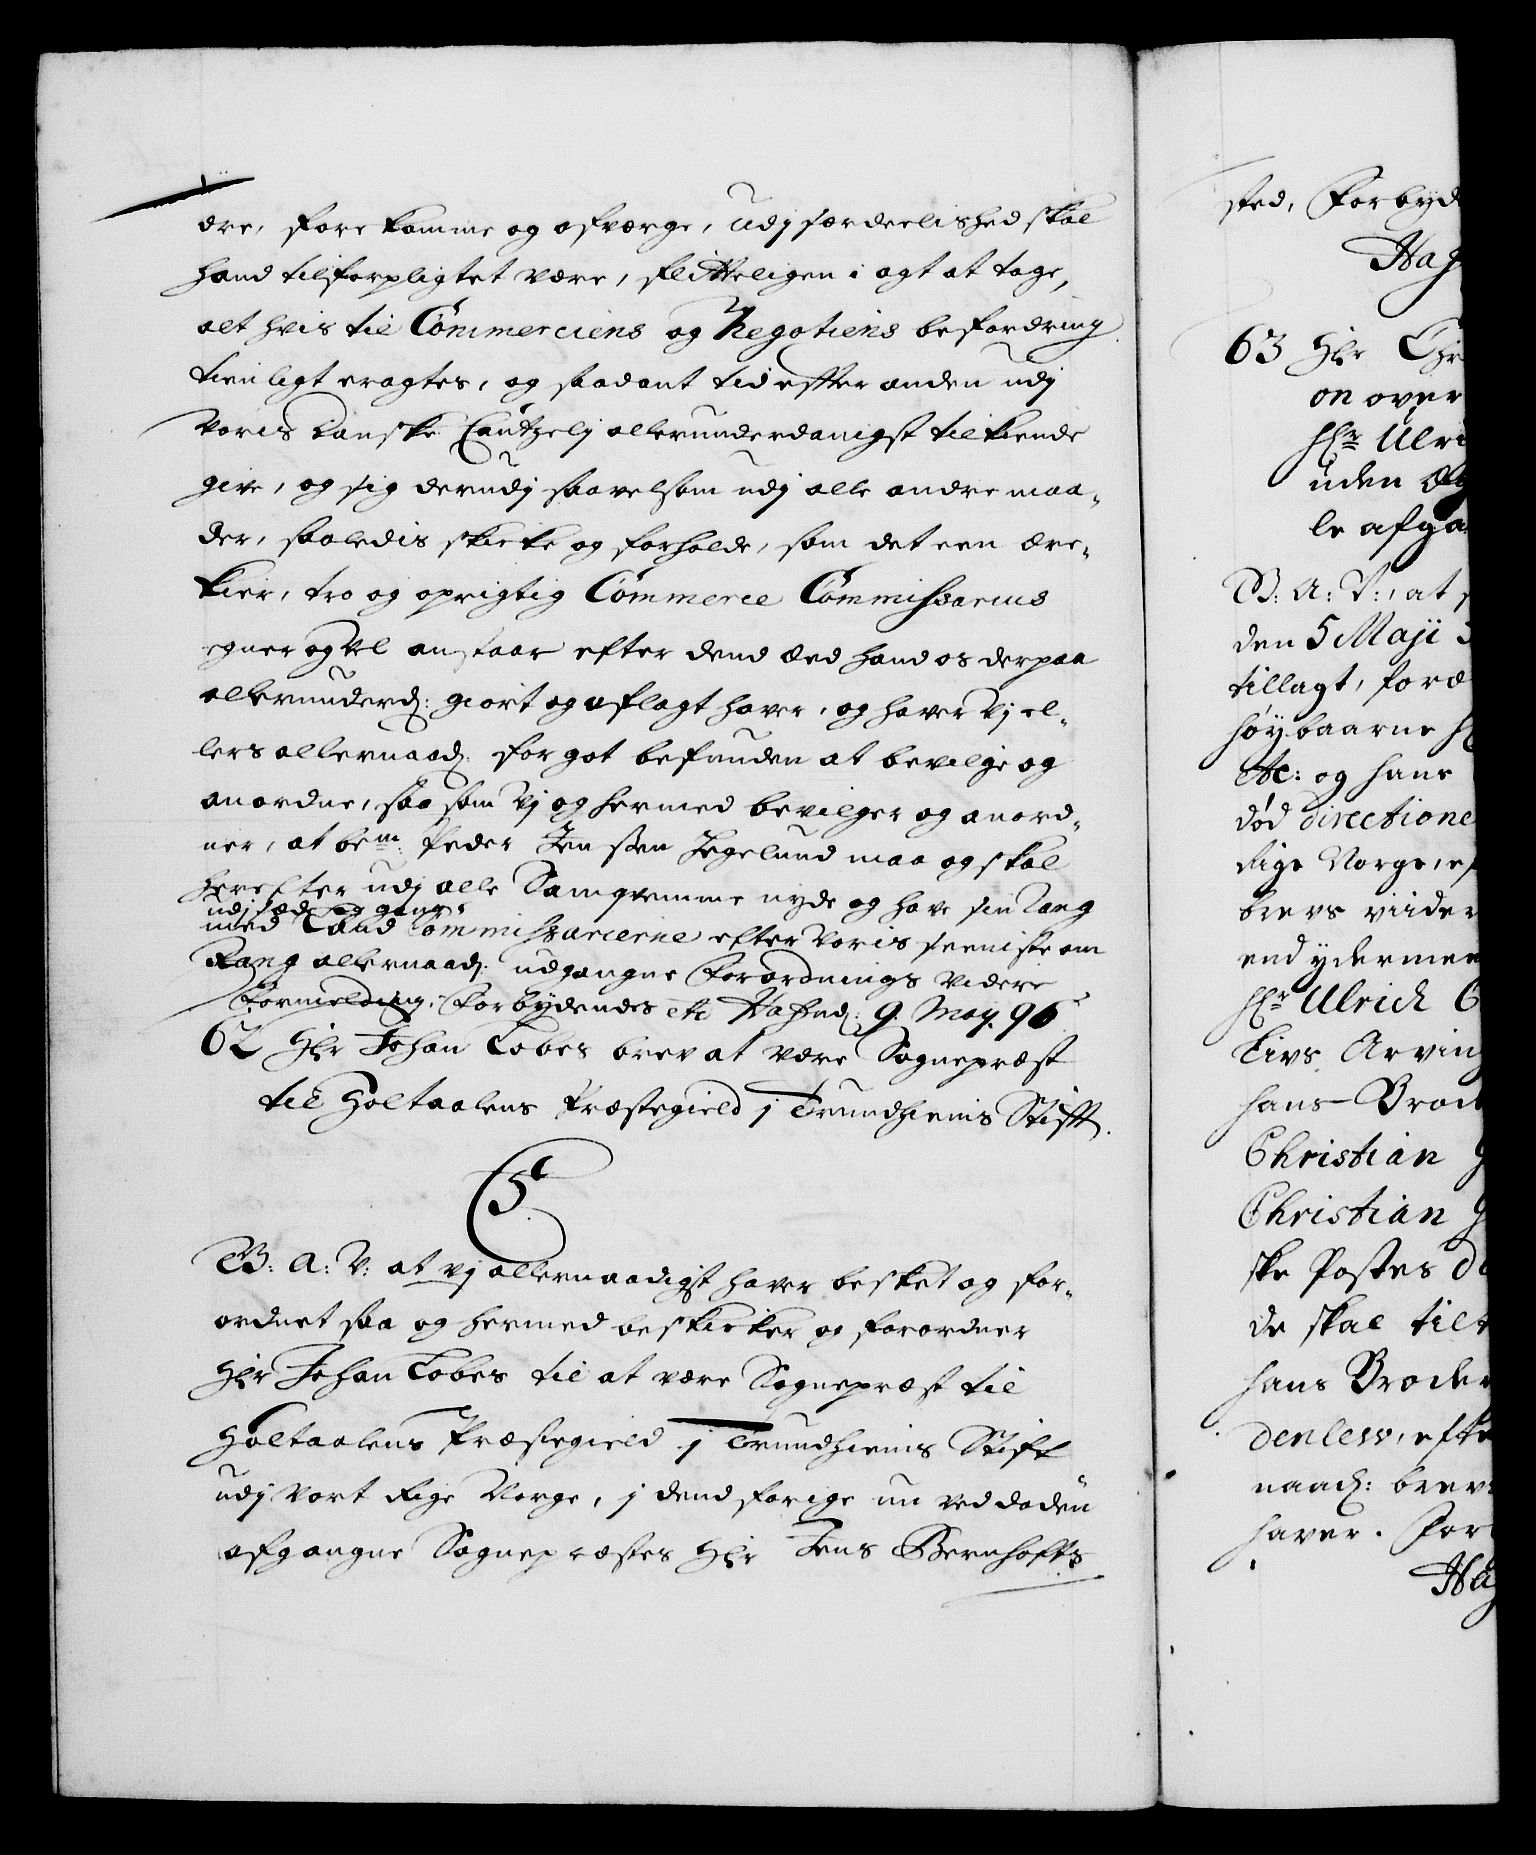 dre, forekomme og afværge, udj særdeelished skal
hand tilforpligtet være, flitteligen i agt at tage,
alt hvis til Commerciens og Negotiens befordring
tienligt eragtes, og saadant tid efter anden udj
Voris Danske Cantzelj allerunderdanigst tilkiende
give, og sig derudj saavelsom udj alle andre maa-
der, saaledis skicke og forholde, som det een ære-
kier, tro og oprigtig Commerce Commissarius
egner og Vel anstaar efter dend Æed hand os derpaa
allerunderd: giort og aflagt haver, og haver Vj el-
lers allernaad: for got befunden at bevilge og
anordne, saa som Vj og hermed bevilger og anord-
ner, at bem: Peder Jenssen Hegelund maa og skal
herefter udj alle Samqvemme nyde og have sin Rang
udj sæde og gang
med Land Commissarierne efter Voris seeniste om
Rang allernaad: udgangne Forordnings Videre
Formelding. Forbydendes etc Hafnd: 9. May. 96
62 Hr Johan Tobes brev at være Sognepræst
til Holtaalens Præstegield j Trundhiems Stift.
C5
B: A: V: at vj allernaadigst haver besket og for-
ordnet saa og hermed beskicker og forordner
Hr Johan Tobes til at være Sognepræst til
Holtaalens Præstegield j Trundhiems Stift
udj Vort Rige Norge, j dend forige nu ved døden
afgangne Sognepræstes Hr Jens Bernhofts
sted, Forbyd
Haf
63 Hr Chr
on over
Hr Ulri
uden
le afga
B: A: V: at
den 5 Maji
tillagt, foræ
høybaarne H
etc: og hans
død directione
Rige Norge, ef
brevs viider
end ydermee
Hr Ulrich G
Livs Arving
hans Brod
Christian G
Christian G
ske Postes d
de skal tilt
hans Broder
denlew, efte
naad: brev
haver. For
Haf